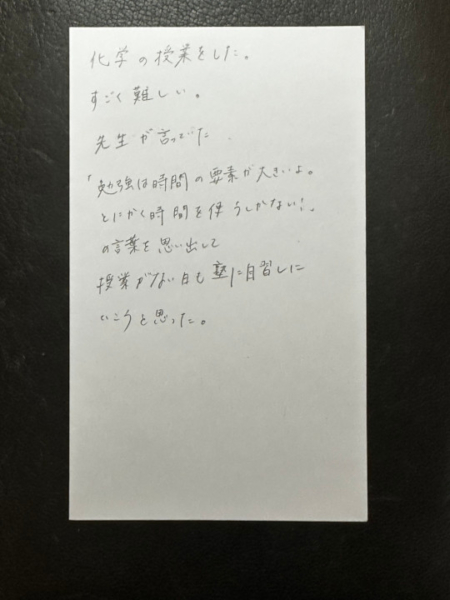 化学の授業をした。
すごく難しい。
先生が言ってた
「勉強は時間の要素が大きいよ。
とにかく時間を使うしかない!」
の言葉を思い出して
授業がない日も塾に自習しに
いこうと思った。